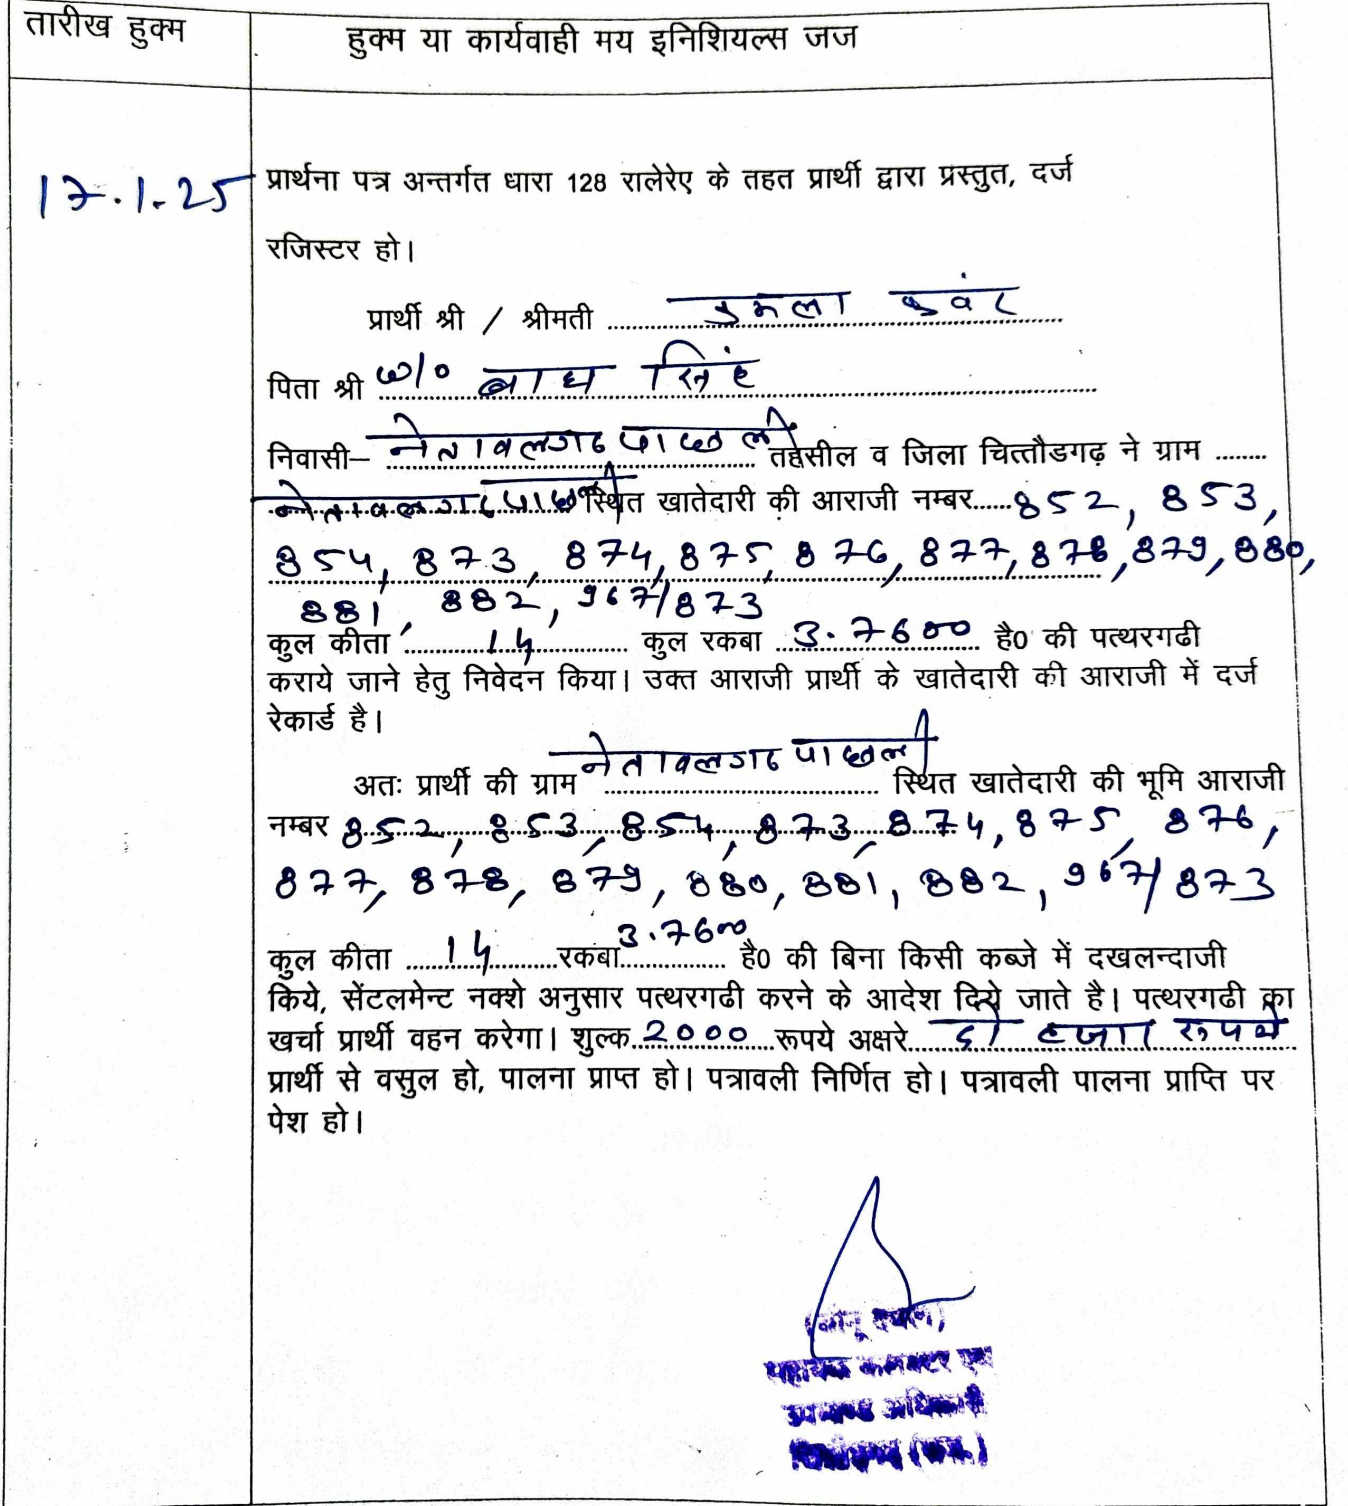 तारीख हुक्म
हुक्म या कार्यवाही मय इनिशियल्स जज
17.1.25
प्रार्थना पत्र अन्तर्गत धारा 128 रालेरेए के तहत प्रार्थी द्वारा प्रस्तुत, दर्ज
रजिस्टर हो।
प्रार्थी श्री / श्रीमती कुवंर
पिता श्री w/o बाघ सिंह
निवासी– नेतावलगढ पाछली तहसील व जिला चित्तौडगढ़ ने ग्राम
नेतावलगढ पाछली स्थित खातेदारी की आराजी नम्बर 852, 853,
854, 873, 874, 875, 876, 877, 878, 879, 880,
881, 882, 967/873
कुल कीता 14 कुल रकबा 3.7600 है0 की पत्थरगढी
कराये जाने हेतु निवेदन किया। उक्त आराजी प्रार्थी के खातेदारी की आराजी में दर्ज
रेकार्ड है।
अतः प्रार्थी की ग्राम नेतावलगढ पाछली स्थित खातेदारी की भूमि आराजी
नम्बर 852, 853, 854, 873, 874, 875, 876,
877, 878, 879, 880, 881, 882, 967/873
कुल कीता 14 रकबा 3.7600 है0 की बिना किसी कब्जे में दखलन्दाजी
किये, सेंटलमेन्ट नक्शे अनुसार पत्थरगढी करने के आदेश दिये जाते है। पत्थरगढी का
खर्चा प्रार्थी वहन करेगा। शुल्क 2000 रूपये अक्षरे दो हजार रूपये
प्रार्थी से वसुल हो, पालना प्राप्त हो। पत्रावली निर्णित हो। पत्रावली पालना प्राप्ति पर
पेश हो।
सहायक कलक्टर एवं
उपखण्ड अधिकारी